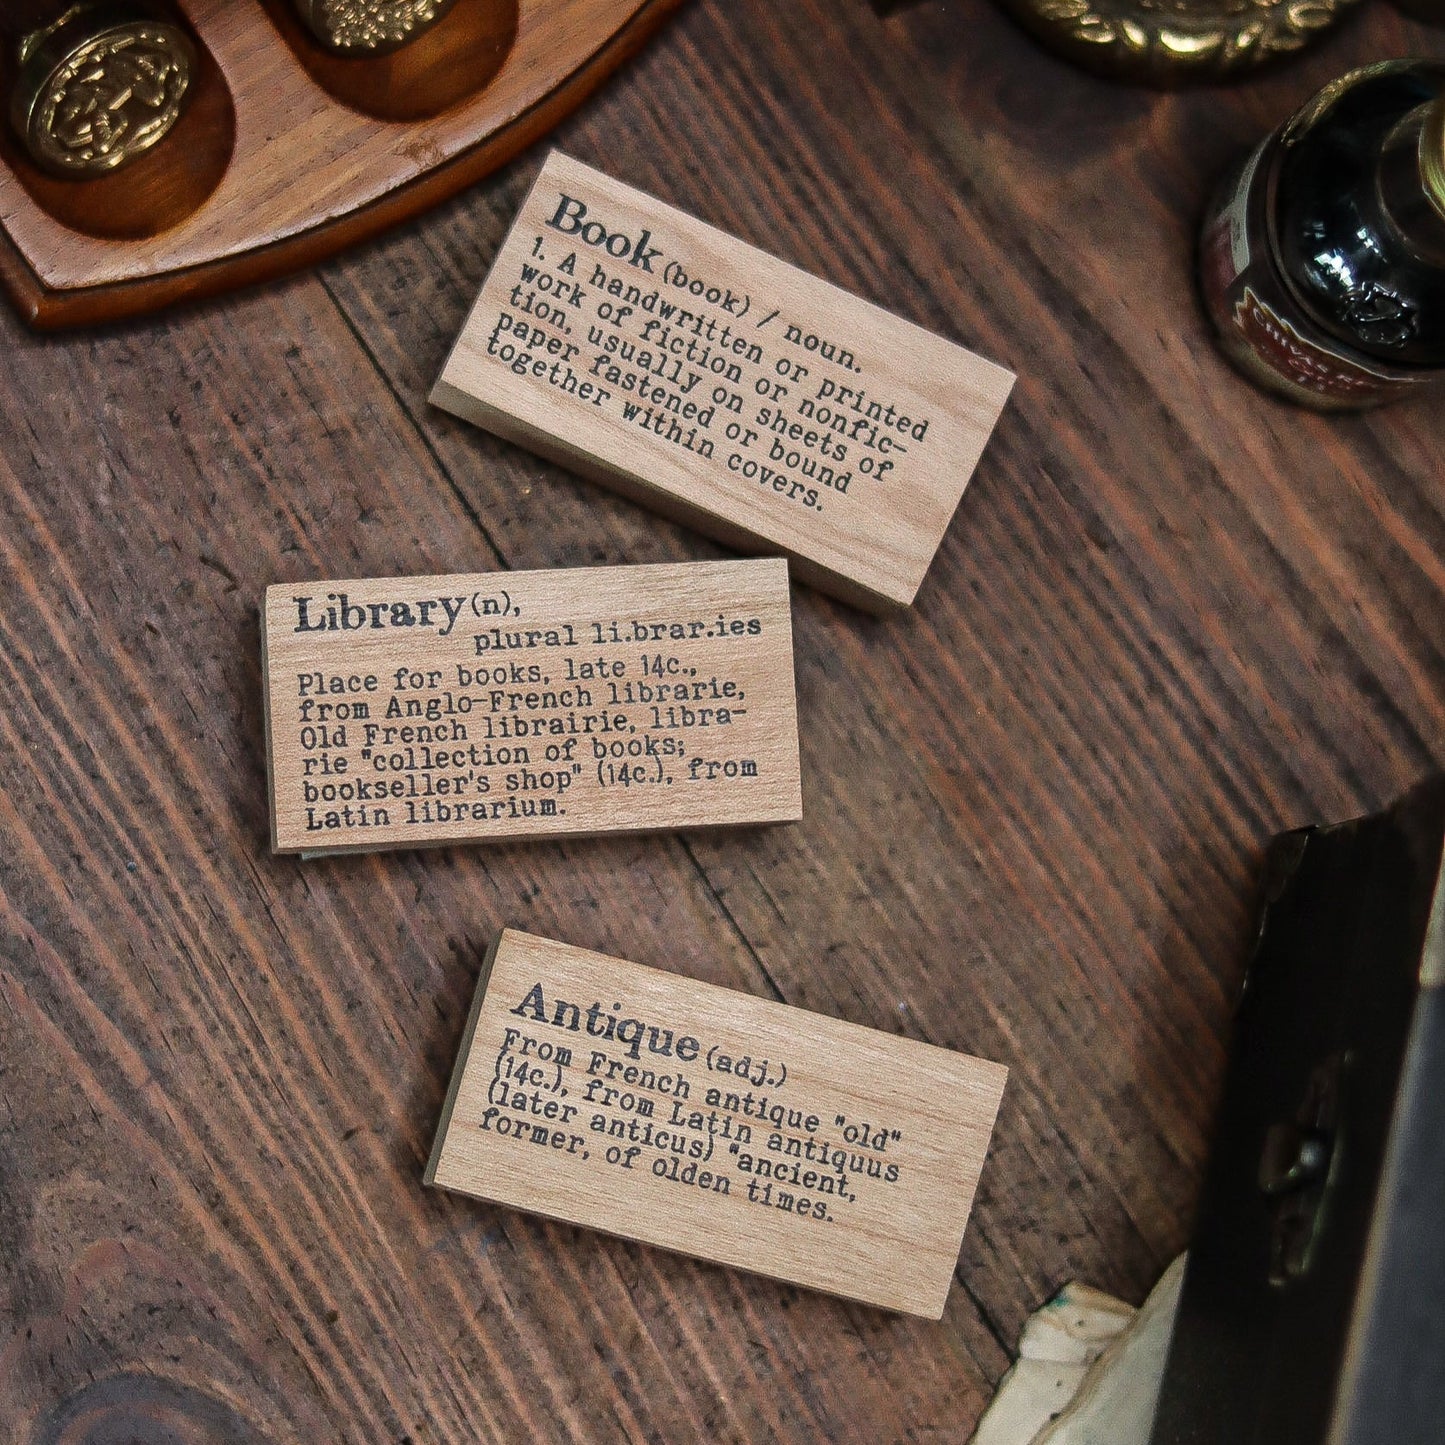 Book (book) / noun.
1. A handwritten or printed
work of fiction or nonfic-
tion, usually on sheets of
paper fastened or bound
together within covers.
Library (n),
plural li.brar.ies
Place for books, late 14c.,
from Anglo-French librarie,
Old French librairie, libra-
rie "collection of books;
bookseller's shop" (14c.), from
Latin librarium.
Antique (adj.)
From French antique "old"
(14c.), from Latin antiquus
(later anticus) "ancient,
former, of olden times.